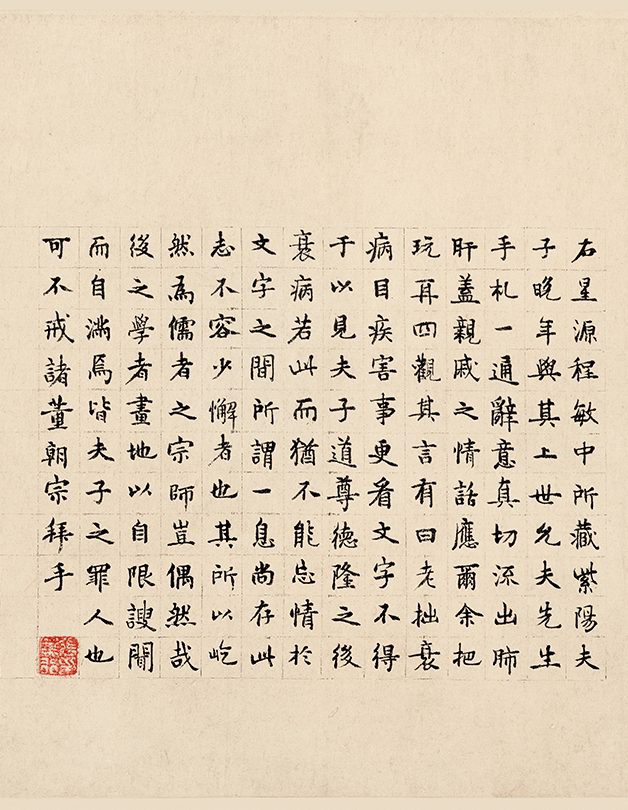 右星源程敏中所藏紫陽夫
子晚年與其上世允夫先生
手札一通辭意真切流出肺
肝蓋親戚之情話應爾余把
玩再四觀其言有曰老拙衰
病目疾害事更看文字不得
于以見夫子道尊德隆之後
衰病若此而猶不能忘情於
文字之間所謂一息尚存此
志不容少懈者也其所以屹
然為儒者之宗師豈偶然哉
後之學者畫地以自限謏聞
而自滿焉皆夫子之罪人也
可不戒諸董朝宗拜手